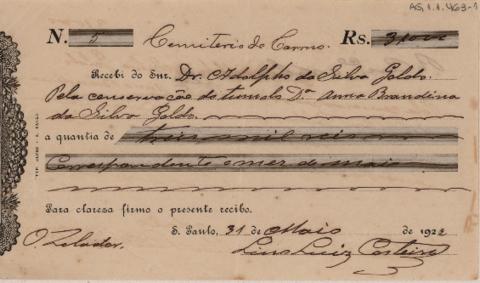 AG.1.1.463-1
N. 5 Cemiterio do Carmo. Rs. 3,000
Recebi do Snr. Dr. Adolpho da Silva Gordo.
Pela conservação do tumulo Dª Anna Brandina
da Silva Gordo.
a quantia de tres mil reis
Correspondente o mez de maio
Para clareza firmo o presente recibo.
S. Paulo, 31 de Maio de 1922
O Zelador. Luiz